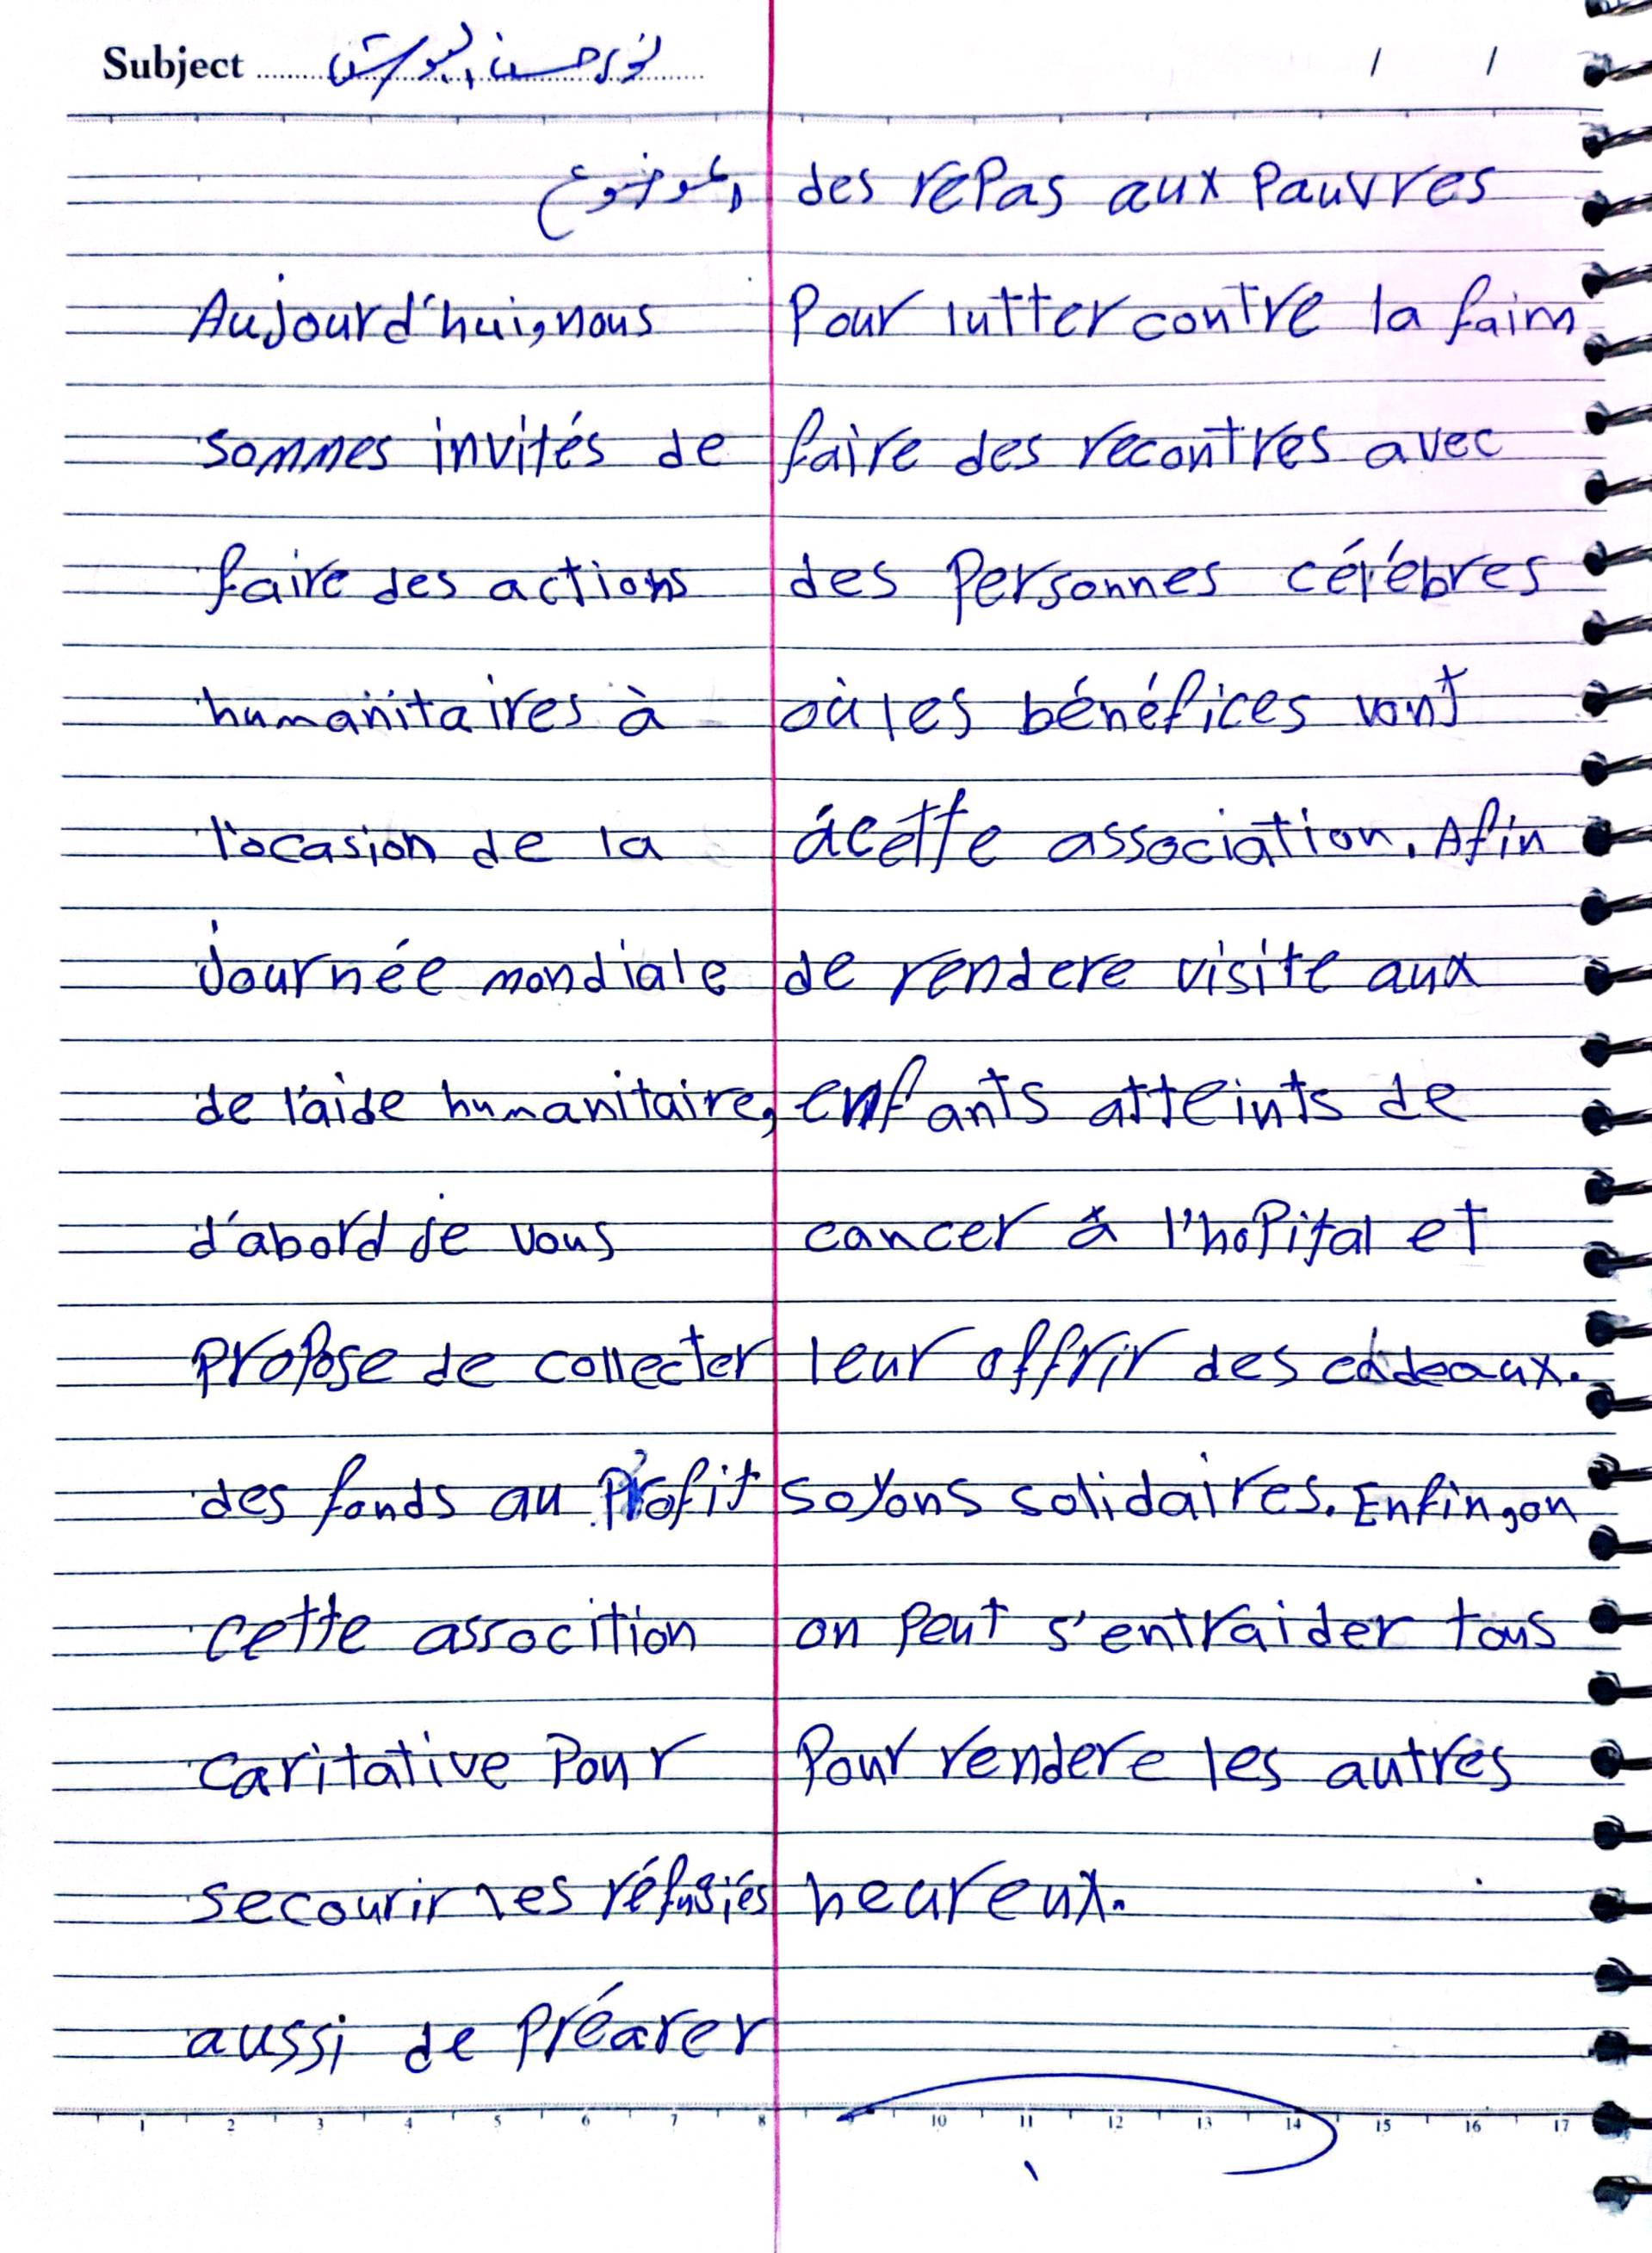 Subject
الموضوع
Aujourd'hui, nous
sommes invités de
faire des actions
humanitaires à
l'ocasion de la
journée mondiale
de l'aide humanitaire,
d'abord je vous
propose de collecter
des fonds au profit
cette assocition
caritative pour
secourir les réfugiés
aussi de préarer
des repas aux pauvres
Pour lutter contre la faim
faire des recontres avec
des personnes célébres
où les bénéfices vont
à cette association. Afin
de rendere visite aux
enfants atteints de
cancer à l'hopital et
leur offrir des cadeaux.
soyons solidaires. Enfin, on
on peut s'entraider tous
Pour rendere les autres
heureux.
1 2 3 4 5 6 7 8 10 11 12 13 14 15 16 17